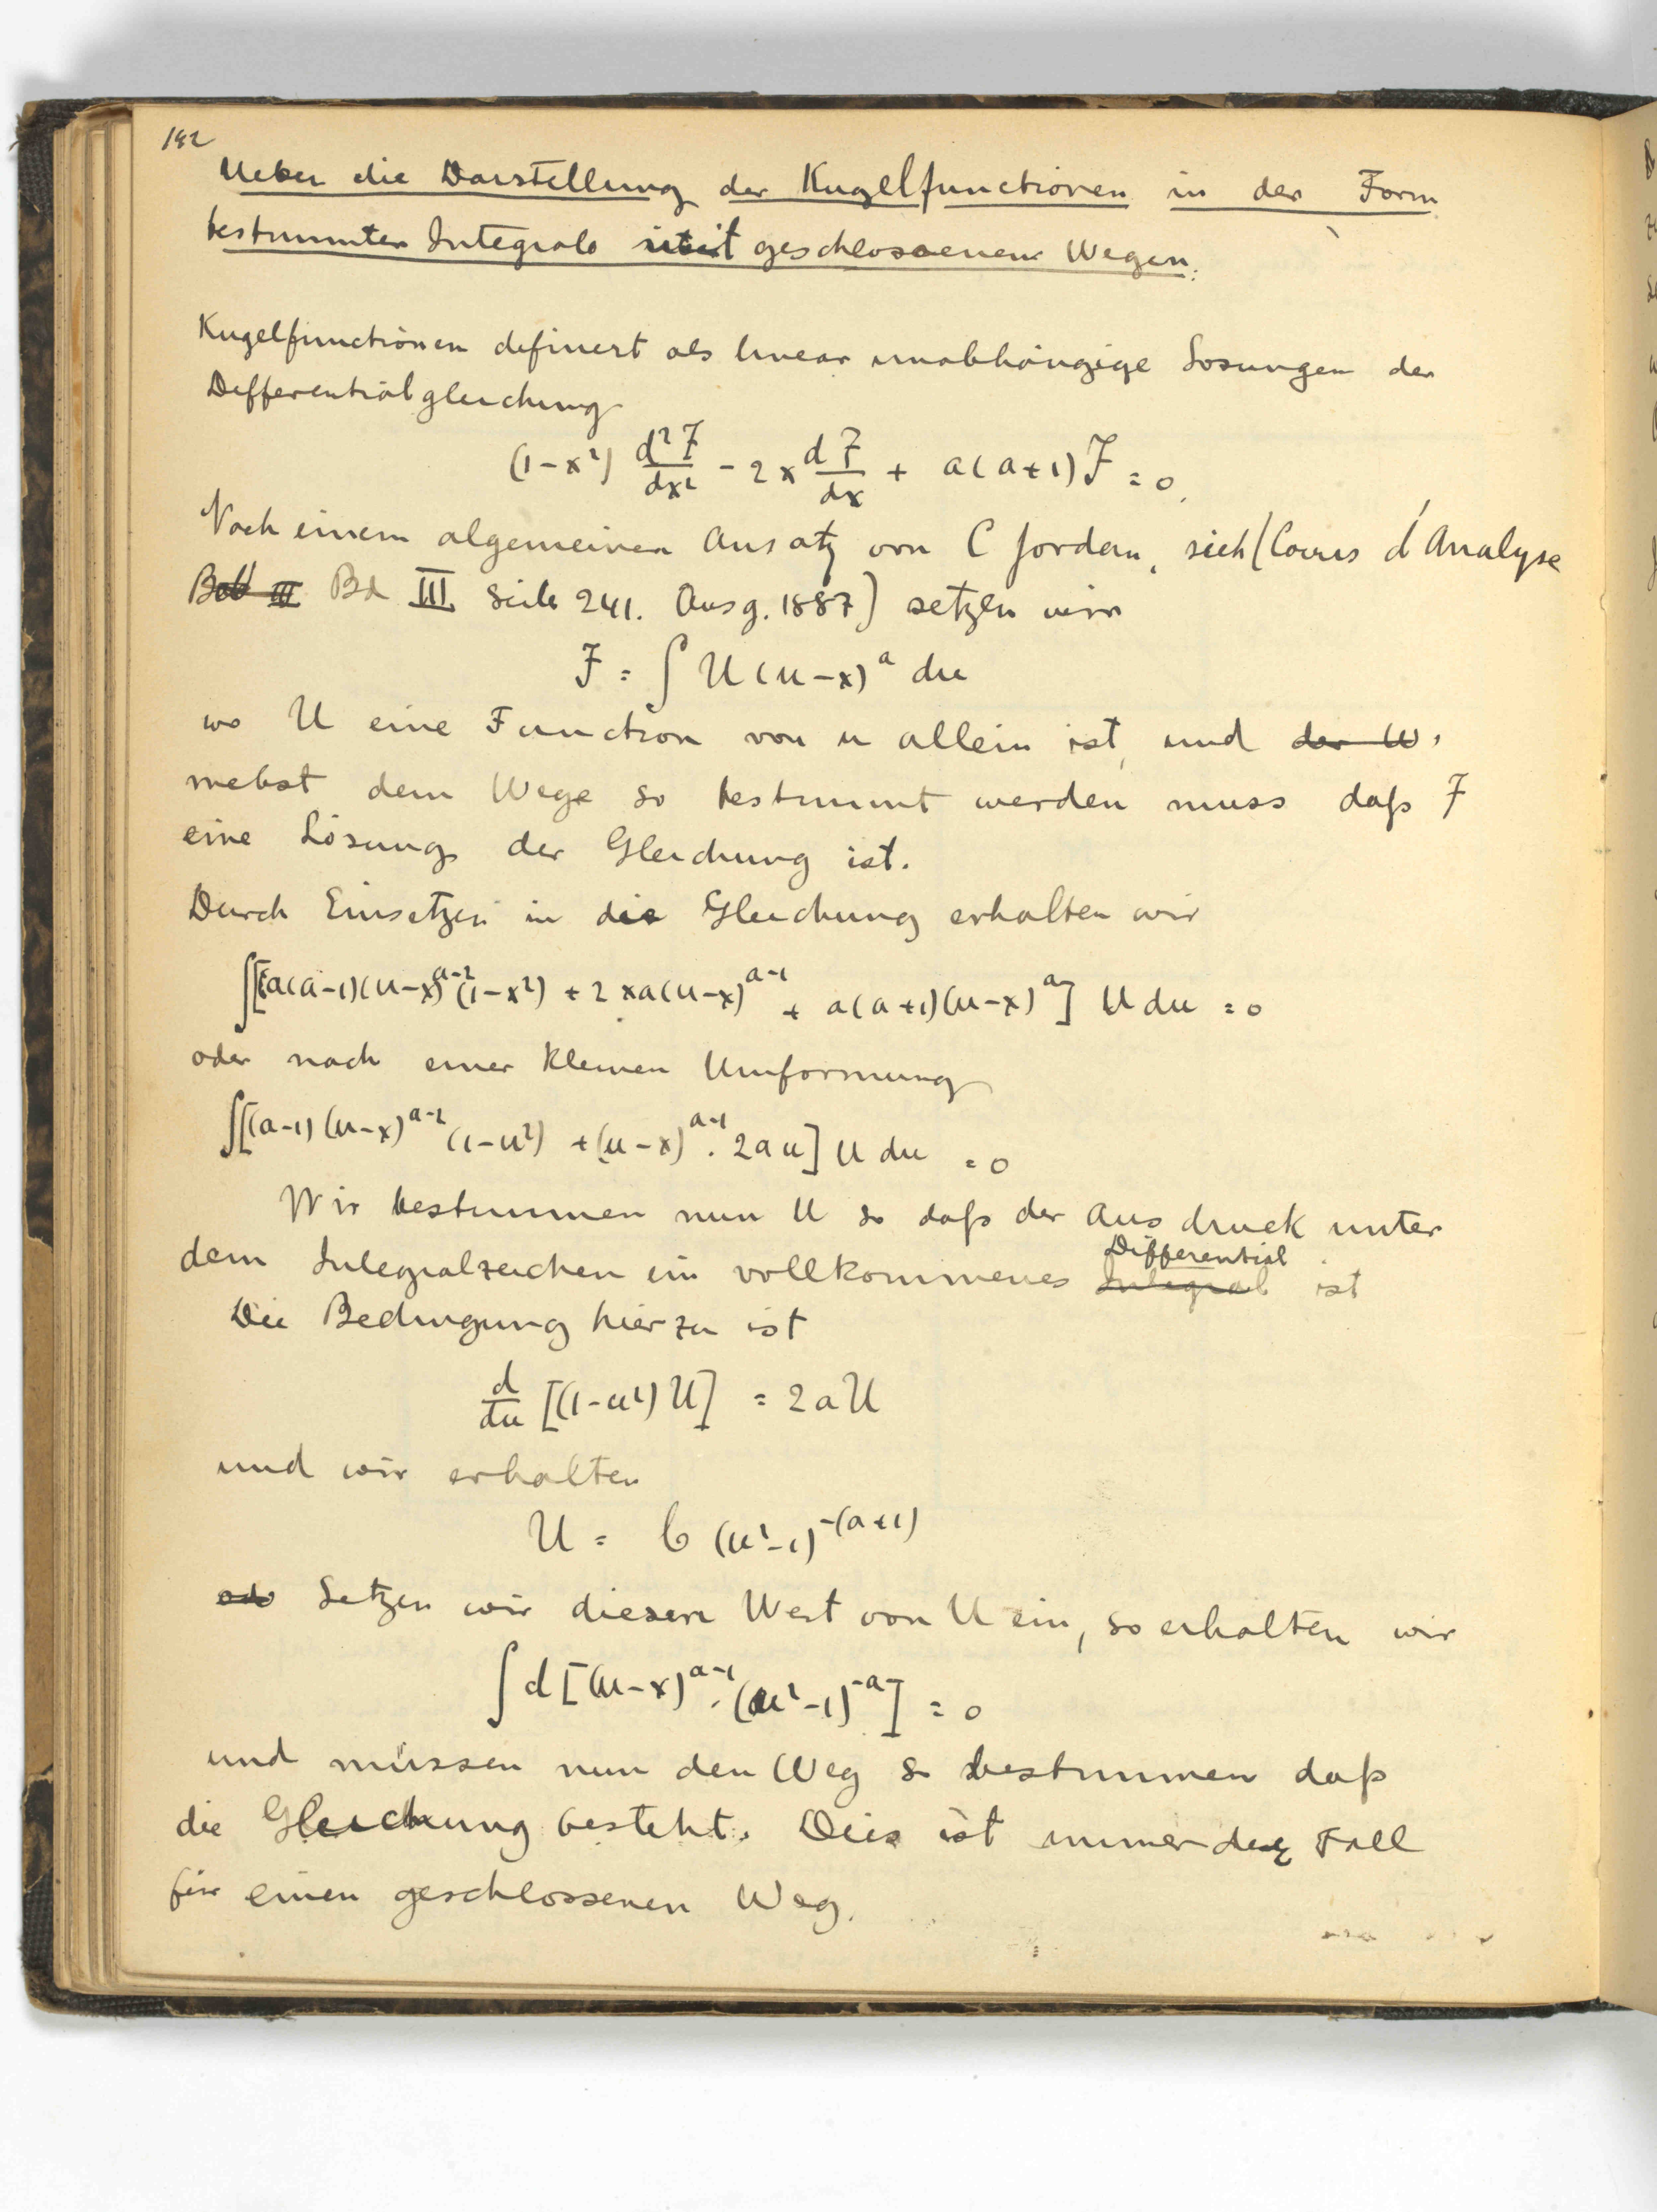 142
Ueber die Darstellung der Kugelfunctionen in der Form
bestimmter Integrale mit geschlossenen Wegen.
Kugelfunctionen definert als linear unabhängige Losungen der
Differentialgleichung
(1-x²) d²F/dx² - 2x dF/dx + a(a+1)F = 0.
Nach einem algemeinen Ansatz von C Jordan, sieh (Cours d'Analyse
Bd III Bd III Seite 241. Ausg. 1887) setzen wir
F = ∫ U(u-x)^a du
wo U eine Function von u allein ist, und der W.
nebst dem Wege so bestimmt werden muss daß F
eine Lösung der Gleichung ist.
Durch Einsetzen in die Gleichung erhalten wir
∫[a(a-1)(u-x)^{a-2}(1-x²) + 2xa(u-x)^{a-1} + a(a+1)(u-x)^a] U du = 0
oder nach einer kleinen Umformung
∫[(a-1)(u-x)^{a-2}(1-u²) + (u-x)^{a-1}. 2au] U du = 0
Wir bestimmen nun U so daß der Ausdruck unter
dem Integralzeichen ein vollkommenes Integral Differential ist
Die Bedingung hierzu ist
d/du [(1-u²)U] = 2aU
und wir erhalten
U = C (u²-1)^{-(a+1)}
ode Setzen wir diesen Wert von U ein, so erhalten wir
∫d[(u-x)^{a-1}.(u²-1)^{-a}] = 0
und müssen nun den Weg so bestimmen daß
die Gleichung besteht. Dies ist immer der Fall
für einen geschlossenen Weg.